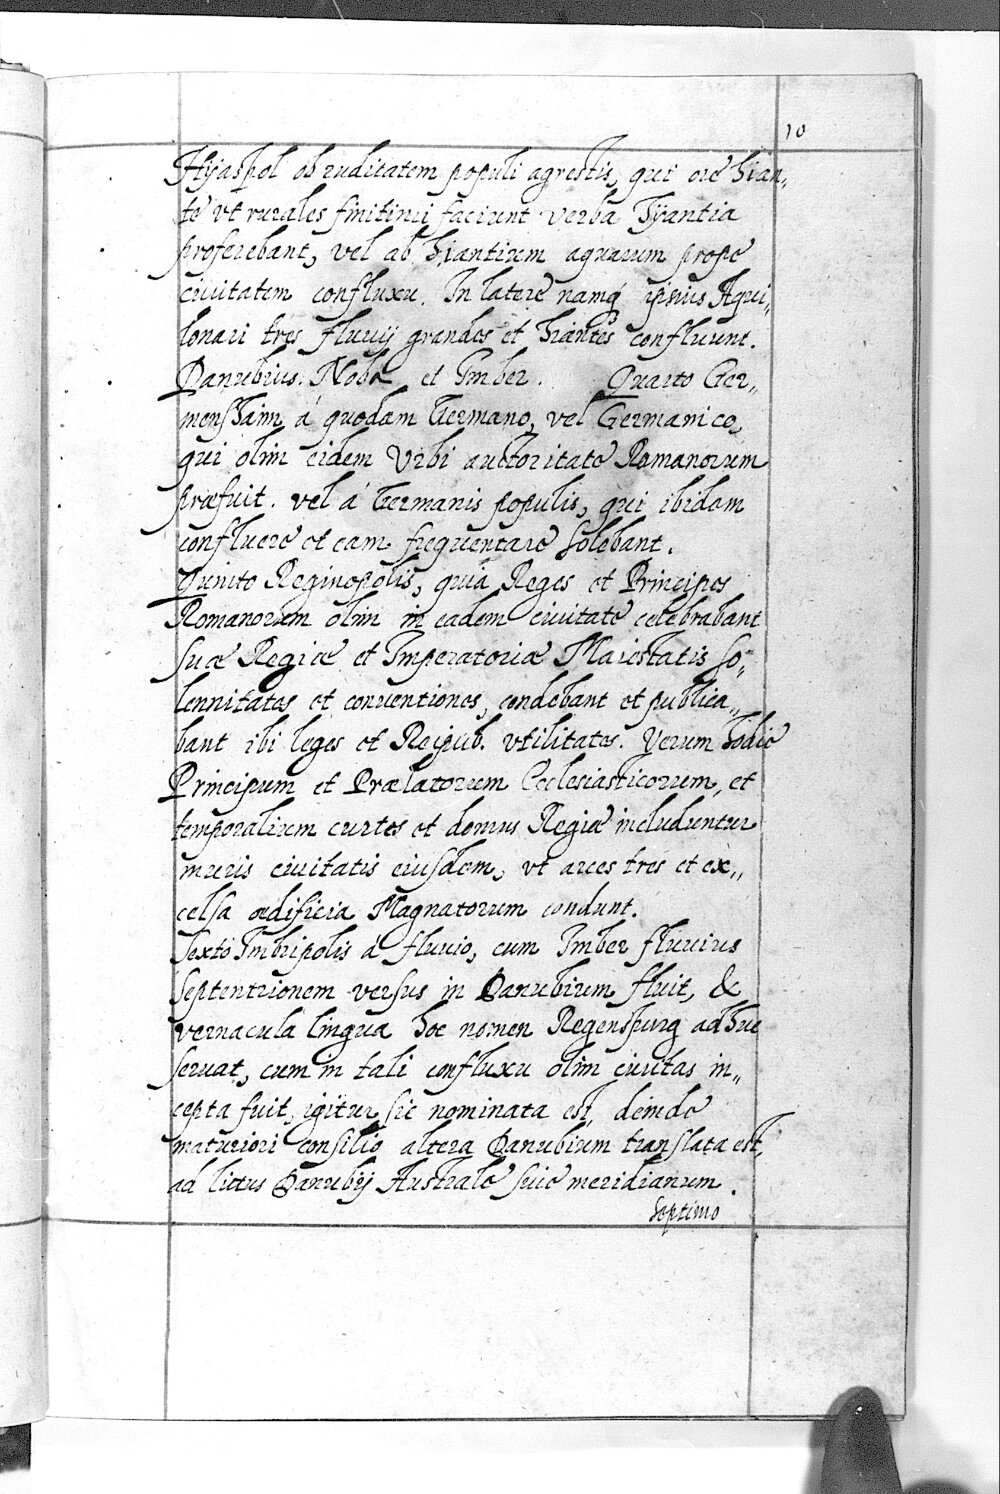 10
Hyaspol ob ruditatem populi agrestis, qui ore hian„
te vt rurales finitimi faciunt verba hyantia
proferebant, vel ab hiantium aquarum prope
ciuitatem confluxu. In latere namq́ ipsius Aqui„
lonari tres fluuij grandes et hiantes confluunt.
Danubius. Naba et Imber. Quarto Ger„
menshaim á quodam Germano, vel Germanico,
qui olim eidem Vrbi auctoritate Romanorum
præfuit. vel á Germanis populis, qui ibidem
confluere et eam frequentare solebant.
Quinto Reginopolis, quia Reges et Principes
Romanorum olim in eadem ciuitate celebrabant
suæ Regiæ et Imperatoriæ Maiestatis so„
lennitates et conuentiones, condebant et publica„
bant ibi leges et Reipub. vtilitates. Verum hodie
Principum et Prælatorum Ecclesiasticorum, et
temporalium curtes et domus Regiæ includuntur
muris ciuitatis eiusdem, vt arces tres et ex„
celsa ædificia Magnatorum condunt.
Sexto Imbripolis á fluuio, cum Imber fluuius
septentrionem versus in Danubium fluit, &
vernacula lingua hoc nomen Regenspurg adhuc
seruat, cum in tali confluxu olim ciuitas in„
cepta fuit, igitur sic nominata est, deinde
maturiori consilio altera Danubium translata est,
ad littus Danubij Australe siue meridianum.
Septimo